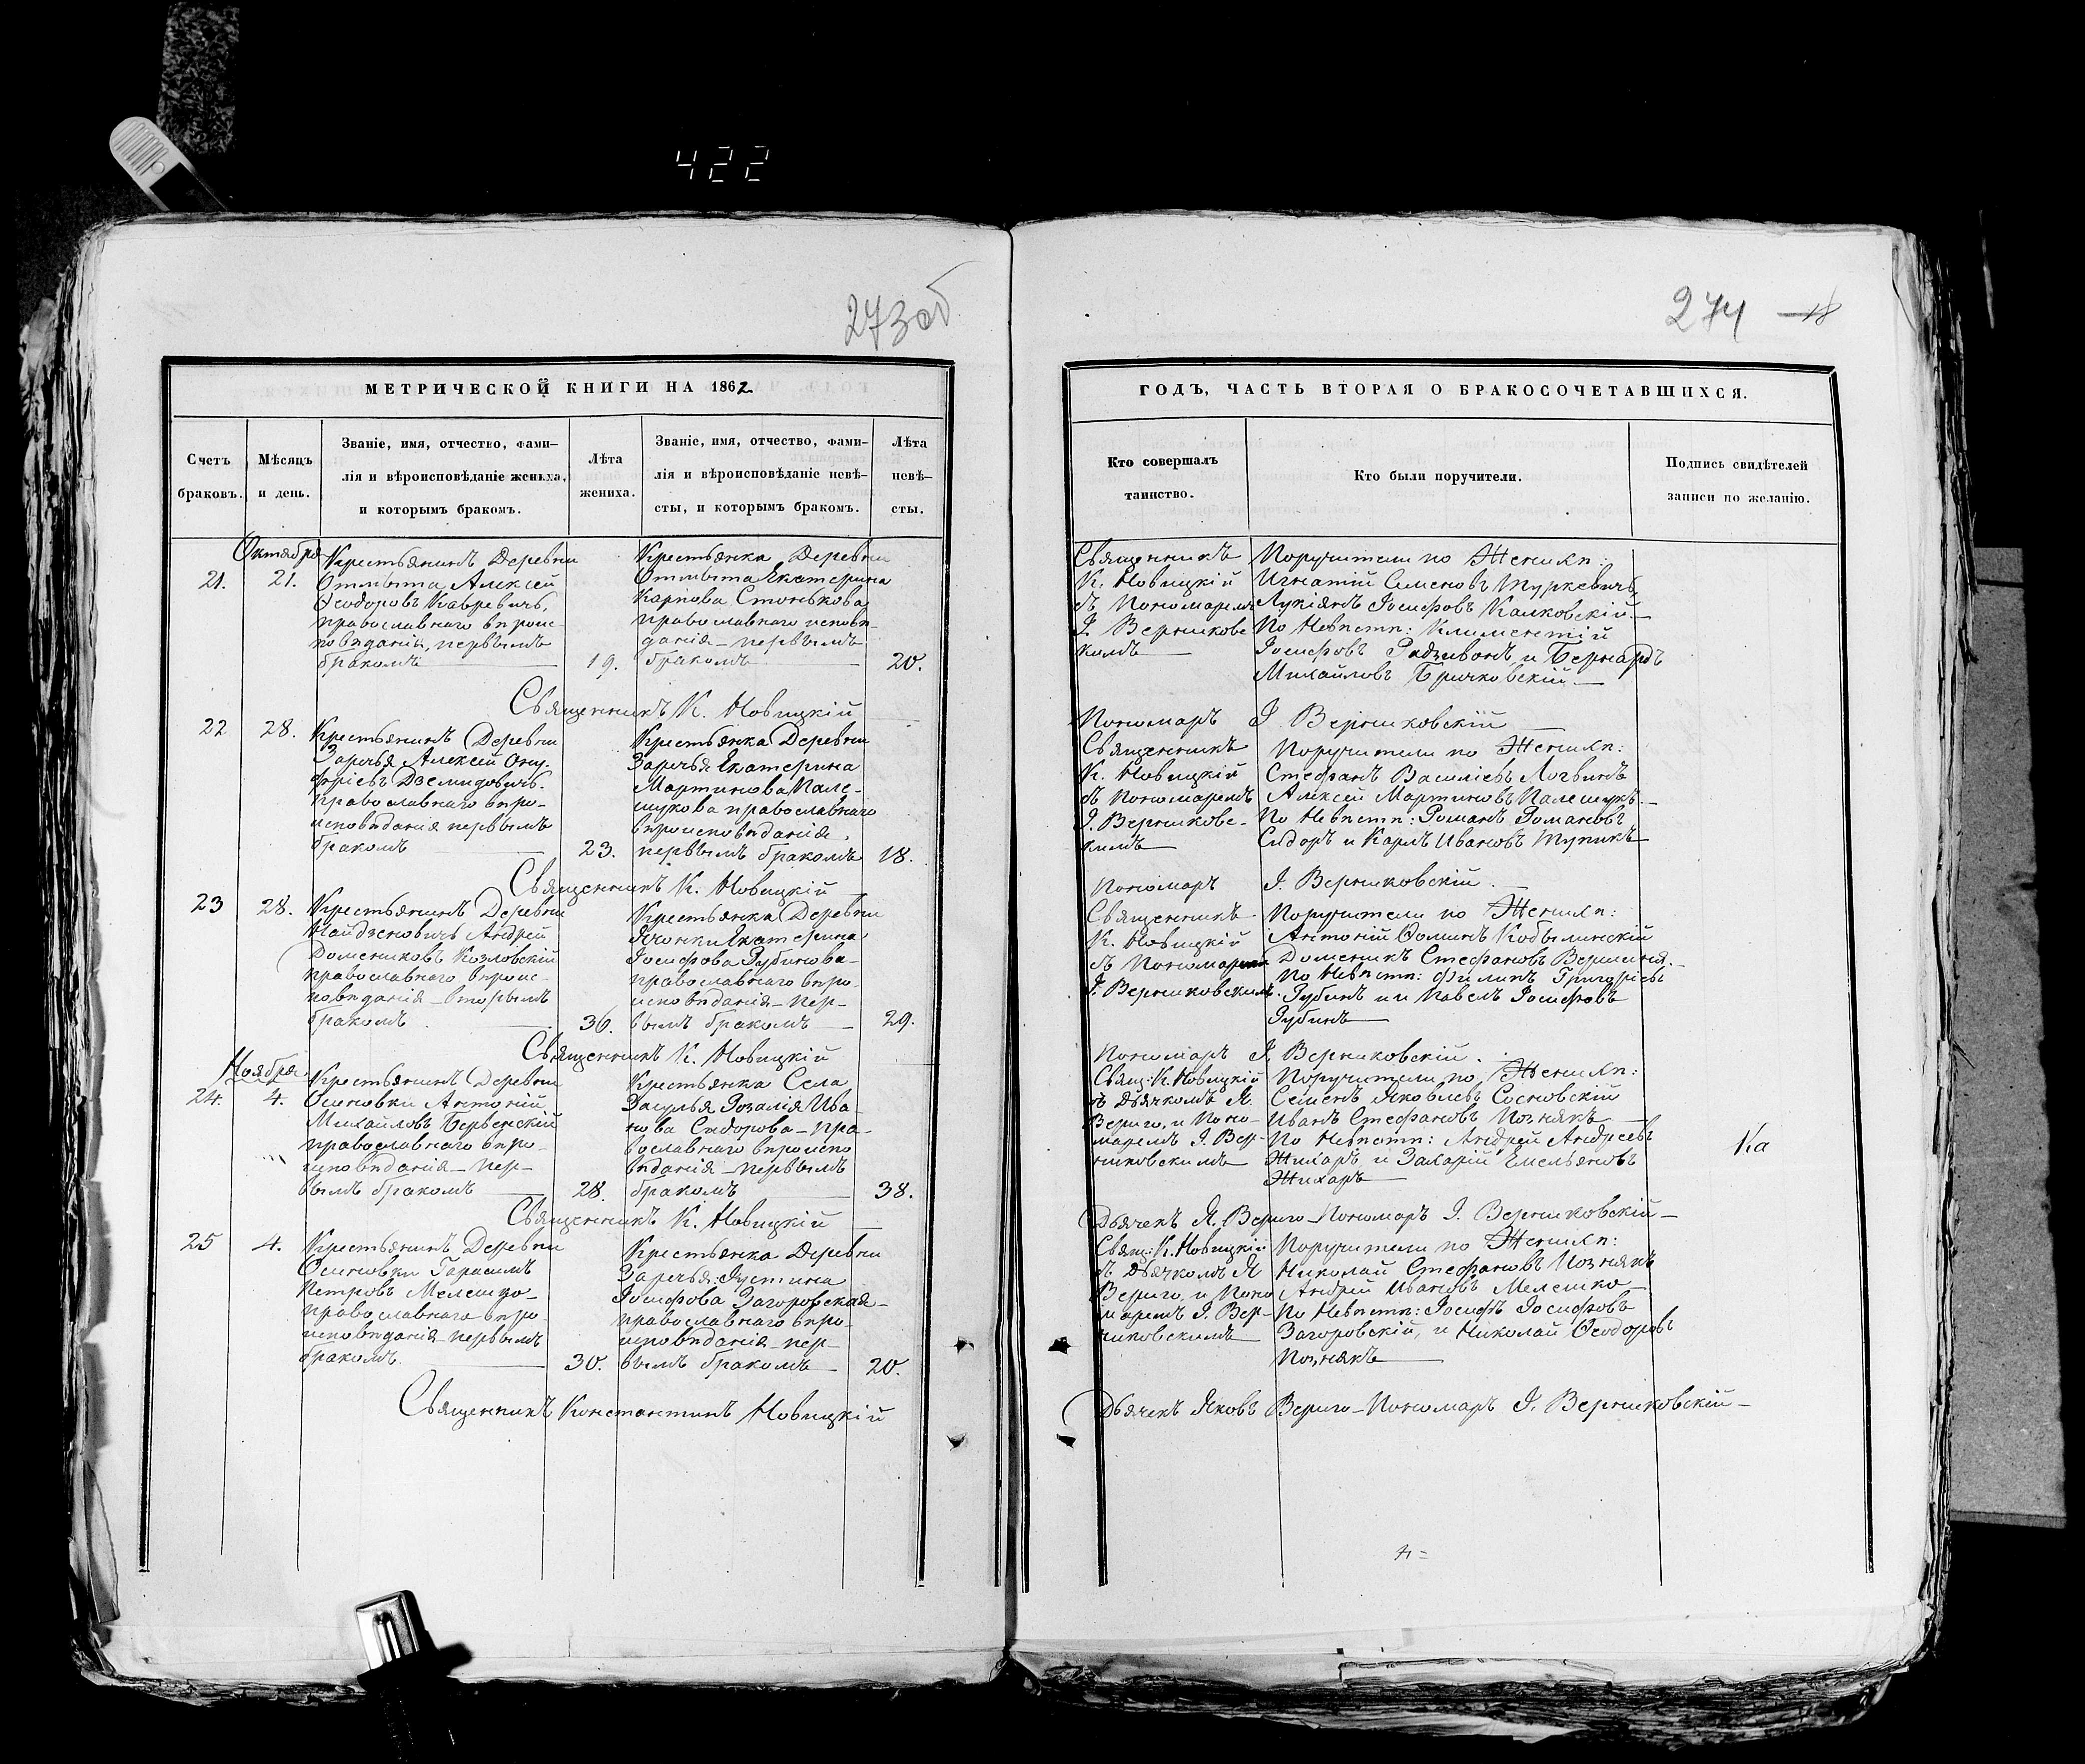 422
273 об
МЕТРИЧЕСКОЙ КНИГИ НА 1862
Счетъ
браковъ.
Мѣсяцъ
и день.
Званіе, имя, отчество, фами-
лія и вѣроисповѣданіе жениха,
и которымъ бракомъ.
Лѣта
жениха.
Званіе, имя, отчество, фами-
лія и вѣроисповѣданіе невѣ-
сты, и которымъ бракомъ.
Лѣта
невѣ-
сты.
Октября
21.
21.
Крестьянинъ Деревни
Отмыта Алексей
Ѳеодоровъ Кавревичъ,
православнаго вѣроис-
повѣданія, первымъ
бракомъ
19.
Крестьянка Деревни
Отмыта Екатерина
Карпова Стонькова
православнаго исповѣ-
данія – первымъ
бракомъ
20.
Священникъ К. Новицкій
22
28.
Крестьянинъ Деревни
Заречья Алексей Ону-
фріевъ Дземидовичъ.
православнаго вѣро-
исповѣданія первымъ
бракомъ
23.
Крестьянка Деревни
Заречья Екатерина
Мартинова Пале-
шукова православнаго
вѣроисповѣданія,
первымъ бракомъ
18.
Священникъ К. Новицкій
23
28.
Крестьянинъ Деревни
Найдзеновичъ Андрей
Домениковъ Козловскій
православнаго вѣроис-
повѣданія – вторымъ
бракомъ
36.
Крестьянка Деревни
Ячонки Екатерина
Іосифова Рубинова
православнаго вѣро-
исповѣданія – пер-
вымъ бракомъ
29.
Священникъ К. Новицкій
Ноября
24.
4.
Крестьянинъ Деревни
Осиновки Антоній
Михайловъ Бервенскій
православнаго вѣро-
исповѣданія – пер-
вымъ бракомъ
28.
Крестьянка Села
Засулья Розалія Ива-
нова Сидорова – пра-
вославнаго вѣроиспо
вѣданія – первымъ
бракомъ
38.
Священникъ К. Новицкій
25
4.
Крестьянинъ Деревни
Осиновки Гарасимъ
Петровъ Мелешко –
православнаго вѣро-
исповѣданія первымъ
бракомъ.
30.
Крестьянка Деревни
Заречья: Іустина
Іосифова Загоровская –
православнаго вѣро-
исповѣданія – пер-
вымъ бракомъ
20.
Священникъ Константинъ Новицкій
274
18
ГОДЪ, ЧАСТЬ ВТОРАЯ О БРАКОСОЧЕТАВШИХСЯ.
Кто совершалъ
таинство.
Кто были поручители.
Подпись свидѣтелей
записи по желанію.
Священникъ
К. Новицкій
съ Пономаремъ
І. Верниковс
комъ
Поручители по Женихѣ:
Игнатій Семеновъ Туркевичъ,
Лукіянъ Іосифовъ Калковскій –
По Невѣстѣ: Климентій
Іосифовъ Радзивонъ и Бернардъ
Михайловъ Бричковскій –
Пономарь І. Верниковскій
Священникъ
К. Новицкій
съ Пономаремъ
І. Верниковс-
кимъ
Поручители по Женихѣ:
Стефанъ Василіевъ Логвинъ
Алексей Мартиновъ Палешукъ –
По Невѣстѣ: Романъ Романовъ
Сидоръ и Карлъ Ивановъ Тупикъ
Пономарь І. Верниковскій.
Священникъ
К. Новицкій
съ Пономаремъ
І. Верниковскимъ.
Поручители по Женихѣ:
Антоній Ѳоминъ Кобылинскій
Доменикъ Стефановъ Вершиня. –
По Невѣстѣ: Филипъ Григоріевъ
Рубинъ и Павелъ Іосифовъ
Рубинъ
Пономарь І. Верниковскій.
Свящ: К. Новицкій
съ Дьячкомъ Я.
Вериго, и Поно-
маремъ І. Вер-
никовскимъ
Поручители по Женихѣ:
Семенъ Яковлевъ Сосновскій
Иванъ Стефановъ Познякъ
По Невѣстѣ: Андрей Андреевъ
Жихаръ и Захарій Емельяновъ
Жихаръ
Ка
Дьячекъ Я. Вериго – Пономарь І. Верниковскій –
Свящ: К. Новицкій
съ Дьячкомъ Я
Вериго, и Поно
маремъ І. Вер-
никовскимъ
Поручители по Женихѣ:
Николай Стефановъ Познякъ
Андрей Ивановъ Мелешко
По Невѣстѣ: Іосифъ Іосифовъ
Загоровскій, и Николай Ѳеодоровъ
Познякъ
Дьячекъ Яковъ Вериго – Пономарь І. Верниковскій –